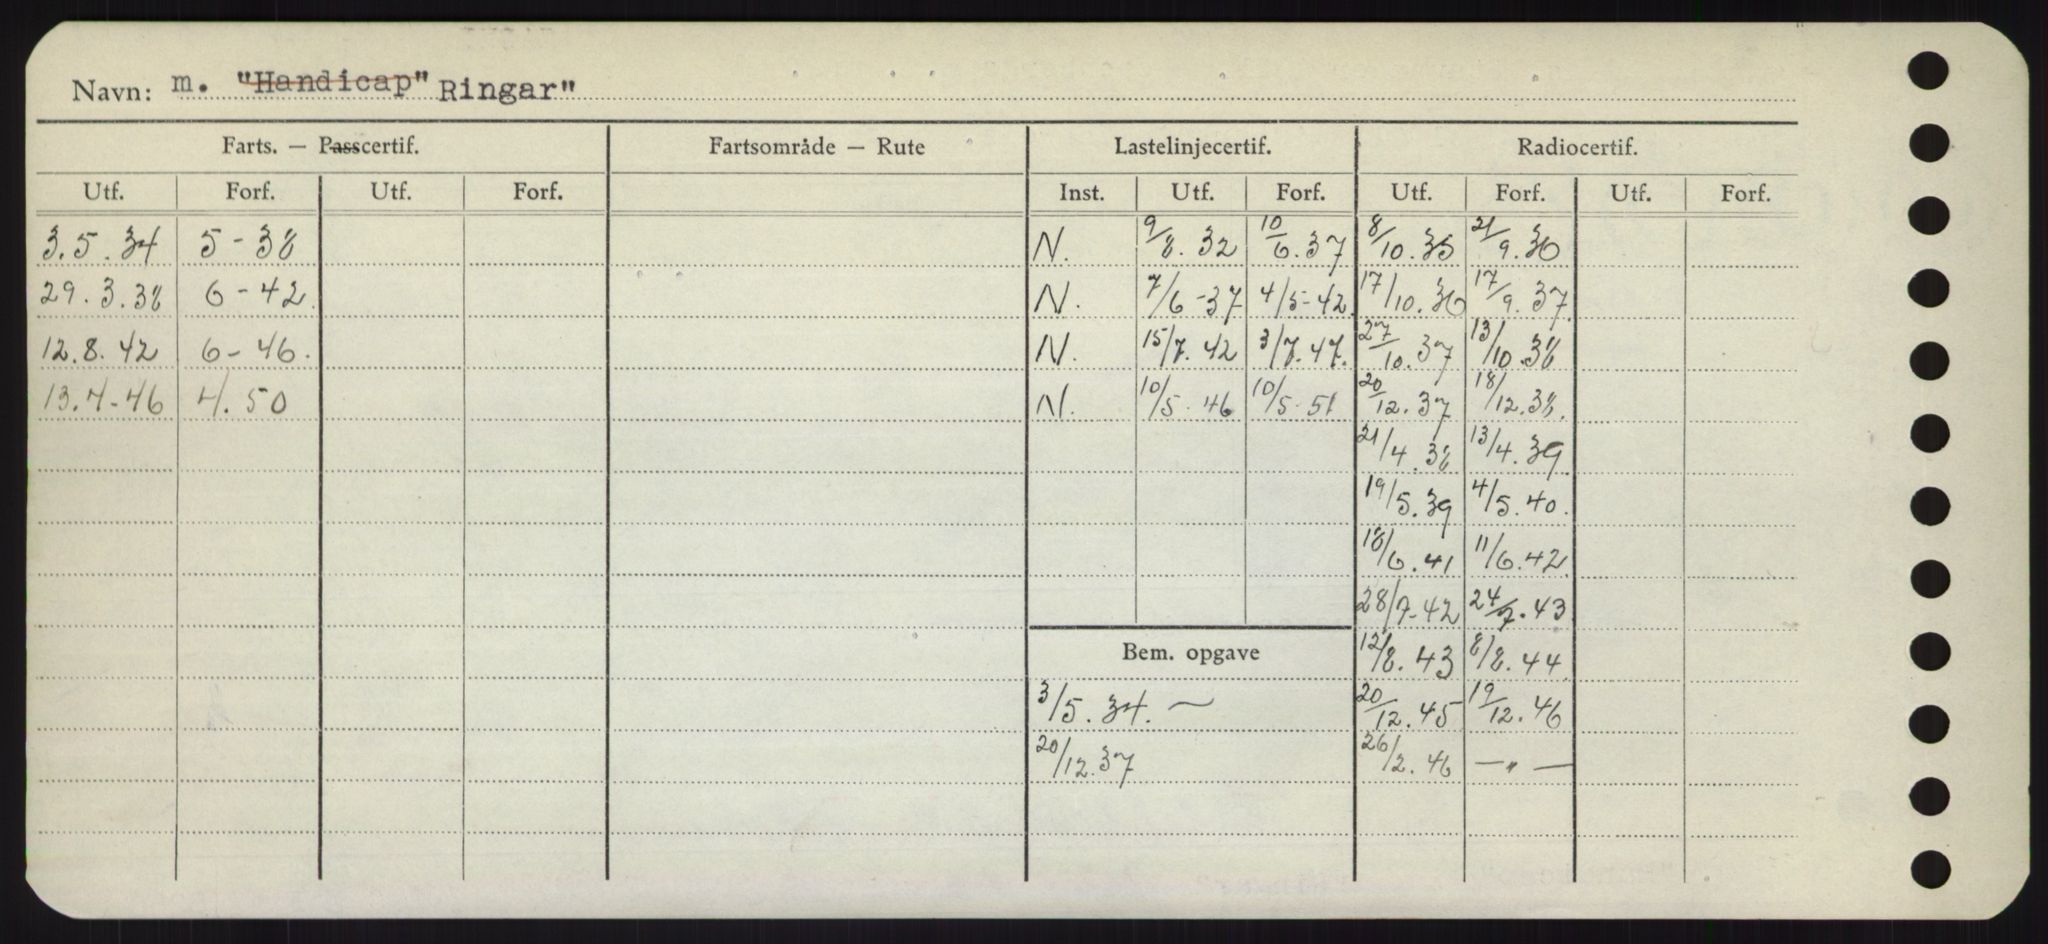 Navn: m. "Handicap" Ringar"
Farts. — Passcertif. Fartsområde — Rute Lastelinjecertif. Radiocertif.
Utf. Forf. Utf. Forf. Inst. Utf. Forf. Utf. Forf. Utf. Forf.
3.5.34 5-38 N. 9/8.32 10/6.37 8/10.35 21/9.36
29.3.38 6-42. N. 7/6-37 4/5-42. 17/10.36 17/9.37.
12.8.42 6-46. N. 15/7.42 3/7.47. 27/10.37 13/10.38
13.4-46 4.50 N. 10/5.46 10/5.51 20/12.37 18/12.38.
21/4.38 13/4.39
19/5.39 4/5.40.
18/6.41 11/6.42
28/7-42 24/7.43
Bem. opgave 12/8.43 8/8.44
3/5.34. ~ 20/12.45 19/12.46
20/12.37 26/2.46 —"—